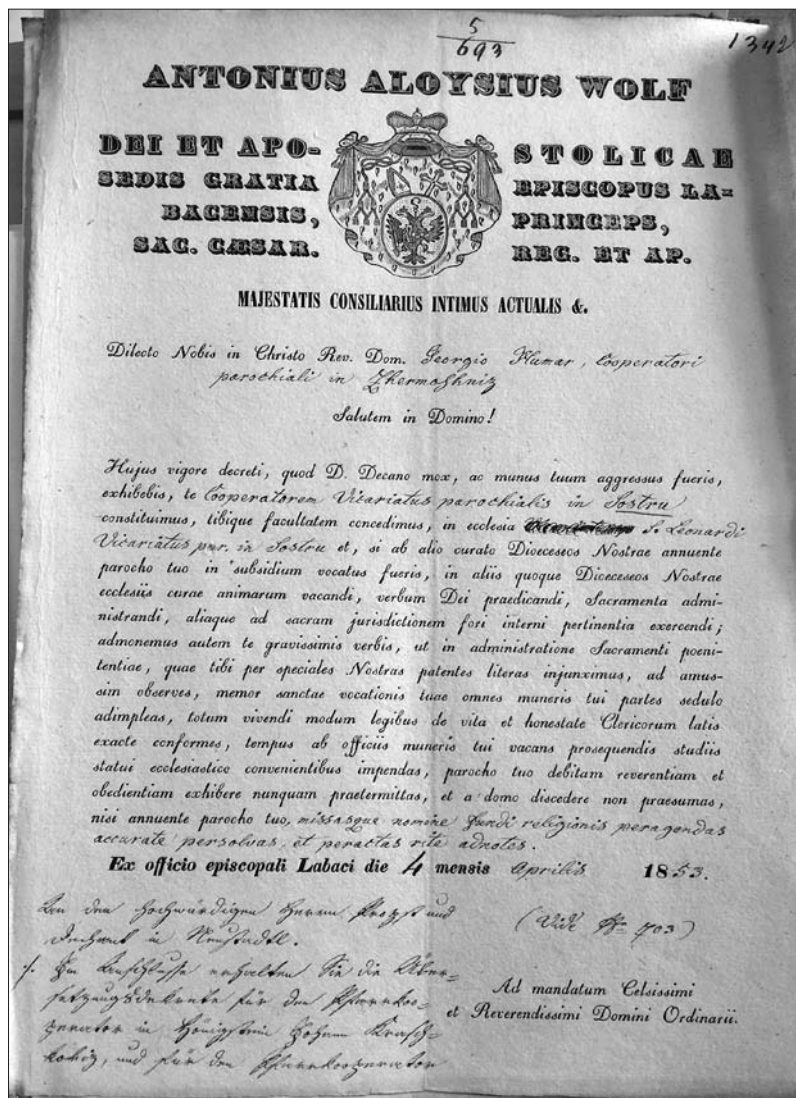 5
693
1342
ANTONIUS ALOYSIUS WOLF
DEI ET APO- STOLICAE
SEDIS GRATIA EPISCOPUS LA=
BACENSIS, PRINCEPS,
SAC. CÆSAR. REG. ET AP.
MAJESTATIS CONSILIARIUS INTIMUS ACTUALIS &.
Dilecto Nobis in Christo Rev. Dom. Georgio Humar, Cooperatori
parochiali in Zhermoshniz
Salutem in Domino!
Hujus vigore decreti, quod D. Decano mox, ac munus tuum aggressus fueris,
exhibebis, te Cooperatorem Vicariatus parochialis in Sostru
constituimus, tibique facultatem concedimus, in ecclesia S. Leonardi
Vicariatus par. in Sostru et, si ab alio curato Dioeceseos Nostrae annuente
parocho tuo in subsidium vocatus fueris, in aliis quoque Dioeceseos Nostrae
ecclesiis curae animarum vacandi, verbum Dei praedicandi, Sacramenta admi-
nistrandi, aliaque ad sacram jurisdictionem fori interni pertinentia exercendi;
admonemus autem te gravissimis verbis, ut in administratione Sacramenti poeni-
tentiae, quae tibi per speciales Nostras patentes literas injunximus, ad amus-
sim observes, memor sanctae vocationis tuae omnes muneris tui partes sedulo
adimpleas, totum vivendi modum legibus de vita et honestate Clericorum latis
exacte conformes, tempus ab officiis muneris tui vacans prosequendis studiis
statui ecclesiastico convenientibus impendas, parocho tuo debitam reverentiam et
obedientiam exhibere nunquam praetermittas, et a domo discedere non praesumas,
nisi annuente parocho tuo, missasque nomine fundi religionis peragendas
accurate persolvas, et peractas rite adnotes.
Ex officio episcopali Labaci die 4 mensis Aprilis 1853.
An den Hochwürdigen Herrn Propst und
Dechant in Neustadtl.
(Vide No 703)
./. Im Anschlusse erhalten Sie die Über-
setzungsdekrete für den Pfarrkoo-
perator in Hönigstein Johann Krasch-
kovitz, und für den Pfarrkooperator
Ad mandatum Celsissimi
et Reverendissimi Domini Ordinarii.